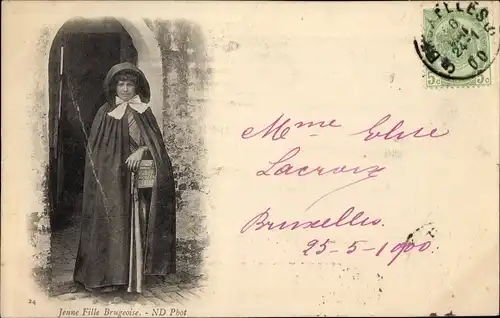 ELLES
00
5
5
Mme Elise
Lacroix
Bruxelles.
25-5-1900.
24
Jeune Fille Brugeoise. - ND Phot